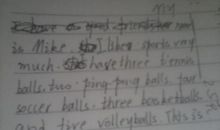 my
I have a good friend. His name
is Mike. I like sports very
much. I have three tennis
balls. two ping-pong balls. four
soccer balls. three basketballs
and five volleyballs. This is